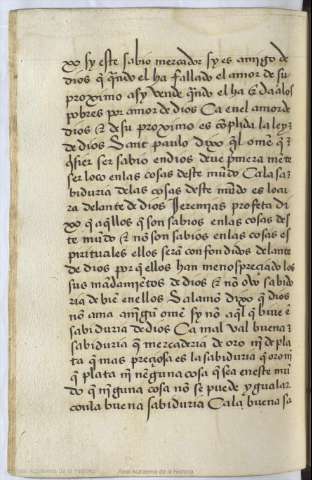 xo sy este sabio mercador sy es amigo de
dios q̄ q̄ndo el ha fallado el amor de su
proximo asy vende q̄ndo el ha ⁊ da a los
pobres por amor de dios Ca en el amor de
dios ⁊ de su proximo es cōplida la ley
de dios Sant paulo dixo q̄l ome q̄
q̄sier ser sabio en dios deue p̄mera mēte
ser loco en las cosas deste mūdo Ca la sa
biduria de las cosas deste mūdo es locu
ra delante de dios Jeremias profeta di
xo q̄ aq̄llos q̄ son sabios en las cosas des
te mūdo ⁊ nō son sabios en las cosas es
pirituales ellos serā confondidos delante
de dios por q̄ ellos han menospreçiado los
sus mādamiētos de dios ⁊ nō ovo sabid
ria de biē en ellos Salamō dixo q̄ dios
nō ama a nīgū ome sy nō aq̄l q̄ biue ē
sabiduria de dios Ca mas val buena
sabiduria q̄ mercaderia de oro nī de pla
ta q̄ mas preçiosa es la sabiduria q̄ oro nī
q̄ plata nī nēguna cosa q̄ sea en este mū
do q̄ nīguna cosa nō se puede ygualar
con la buena sabiduria Ca la buena sa
Real Academia de la Historia